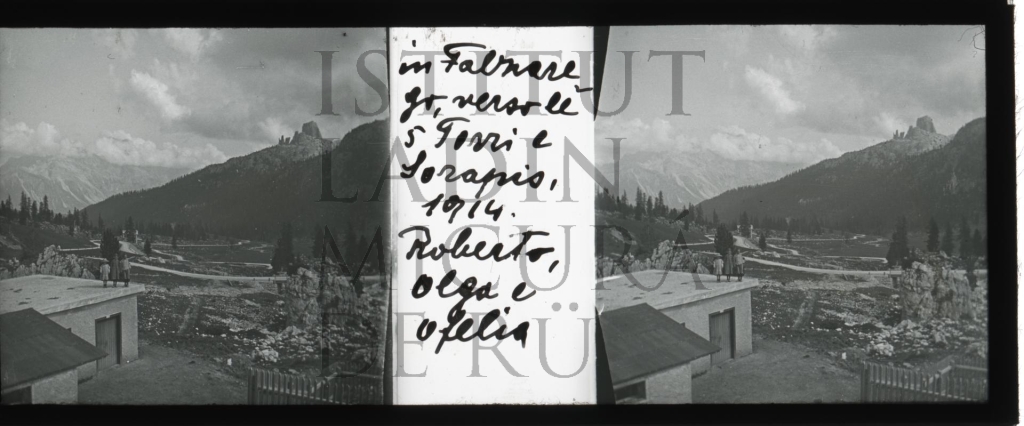 in Falzare-
go, verso le
5 Torri e
Sorapis,
1914.
Roberto,
Olga e
Ofelia
ISTITUT
LADIN
MICURÀ
DE RÜ